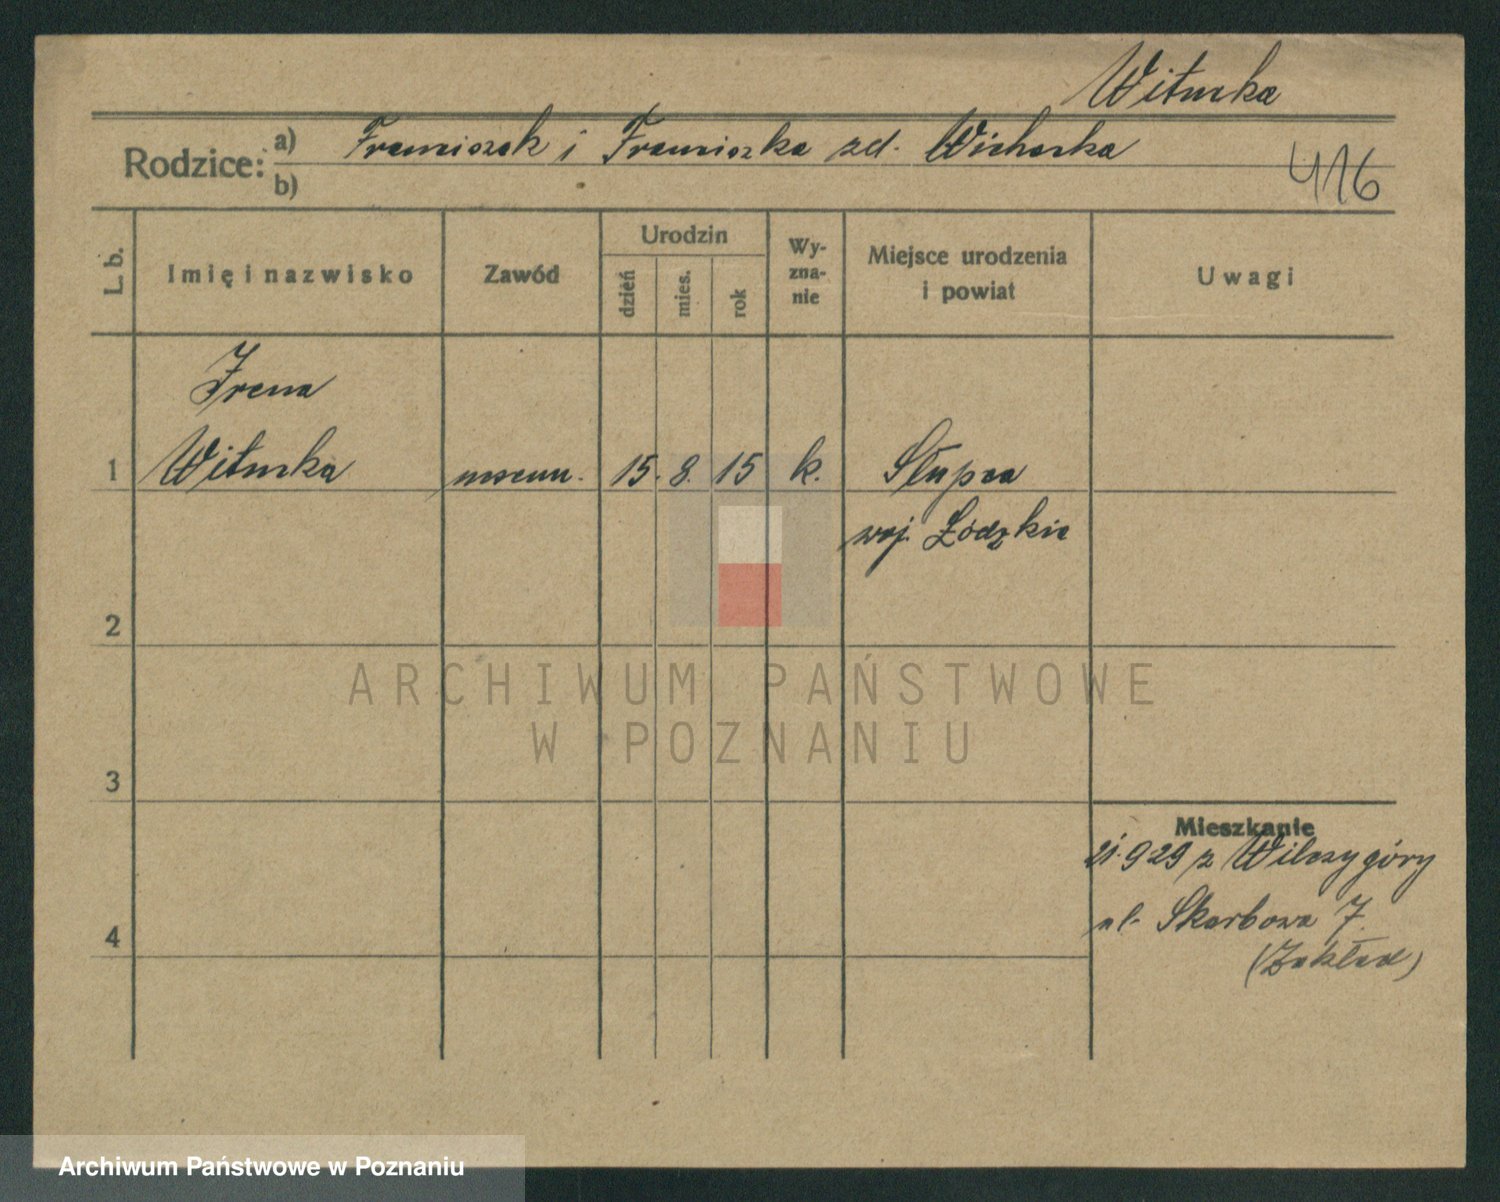 Witurka
Rodzice:
a) Franciszek i Franciszka zd. Wicherka
b)
416
L. b.
Imię i nazwisko
Zawód
Urodzin
dzień
mies.
rok
Wy-
zna-
nie
Miejsce urodzenia
i powiat
Uwagi
Irena
1 Witurka uczenn. 15. 8. 15 k. Słupca
woj. Łódzkie
2
ARCHIWUM PAŃSTWOWE
W POZNANIU
3
Mieszkanie
21.9 29 z Wilczygóry
ul. Skarbowa 7.
4
(Zakład)
Archiwum Państwowe w Poznaniu